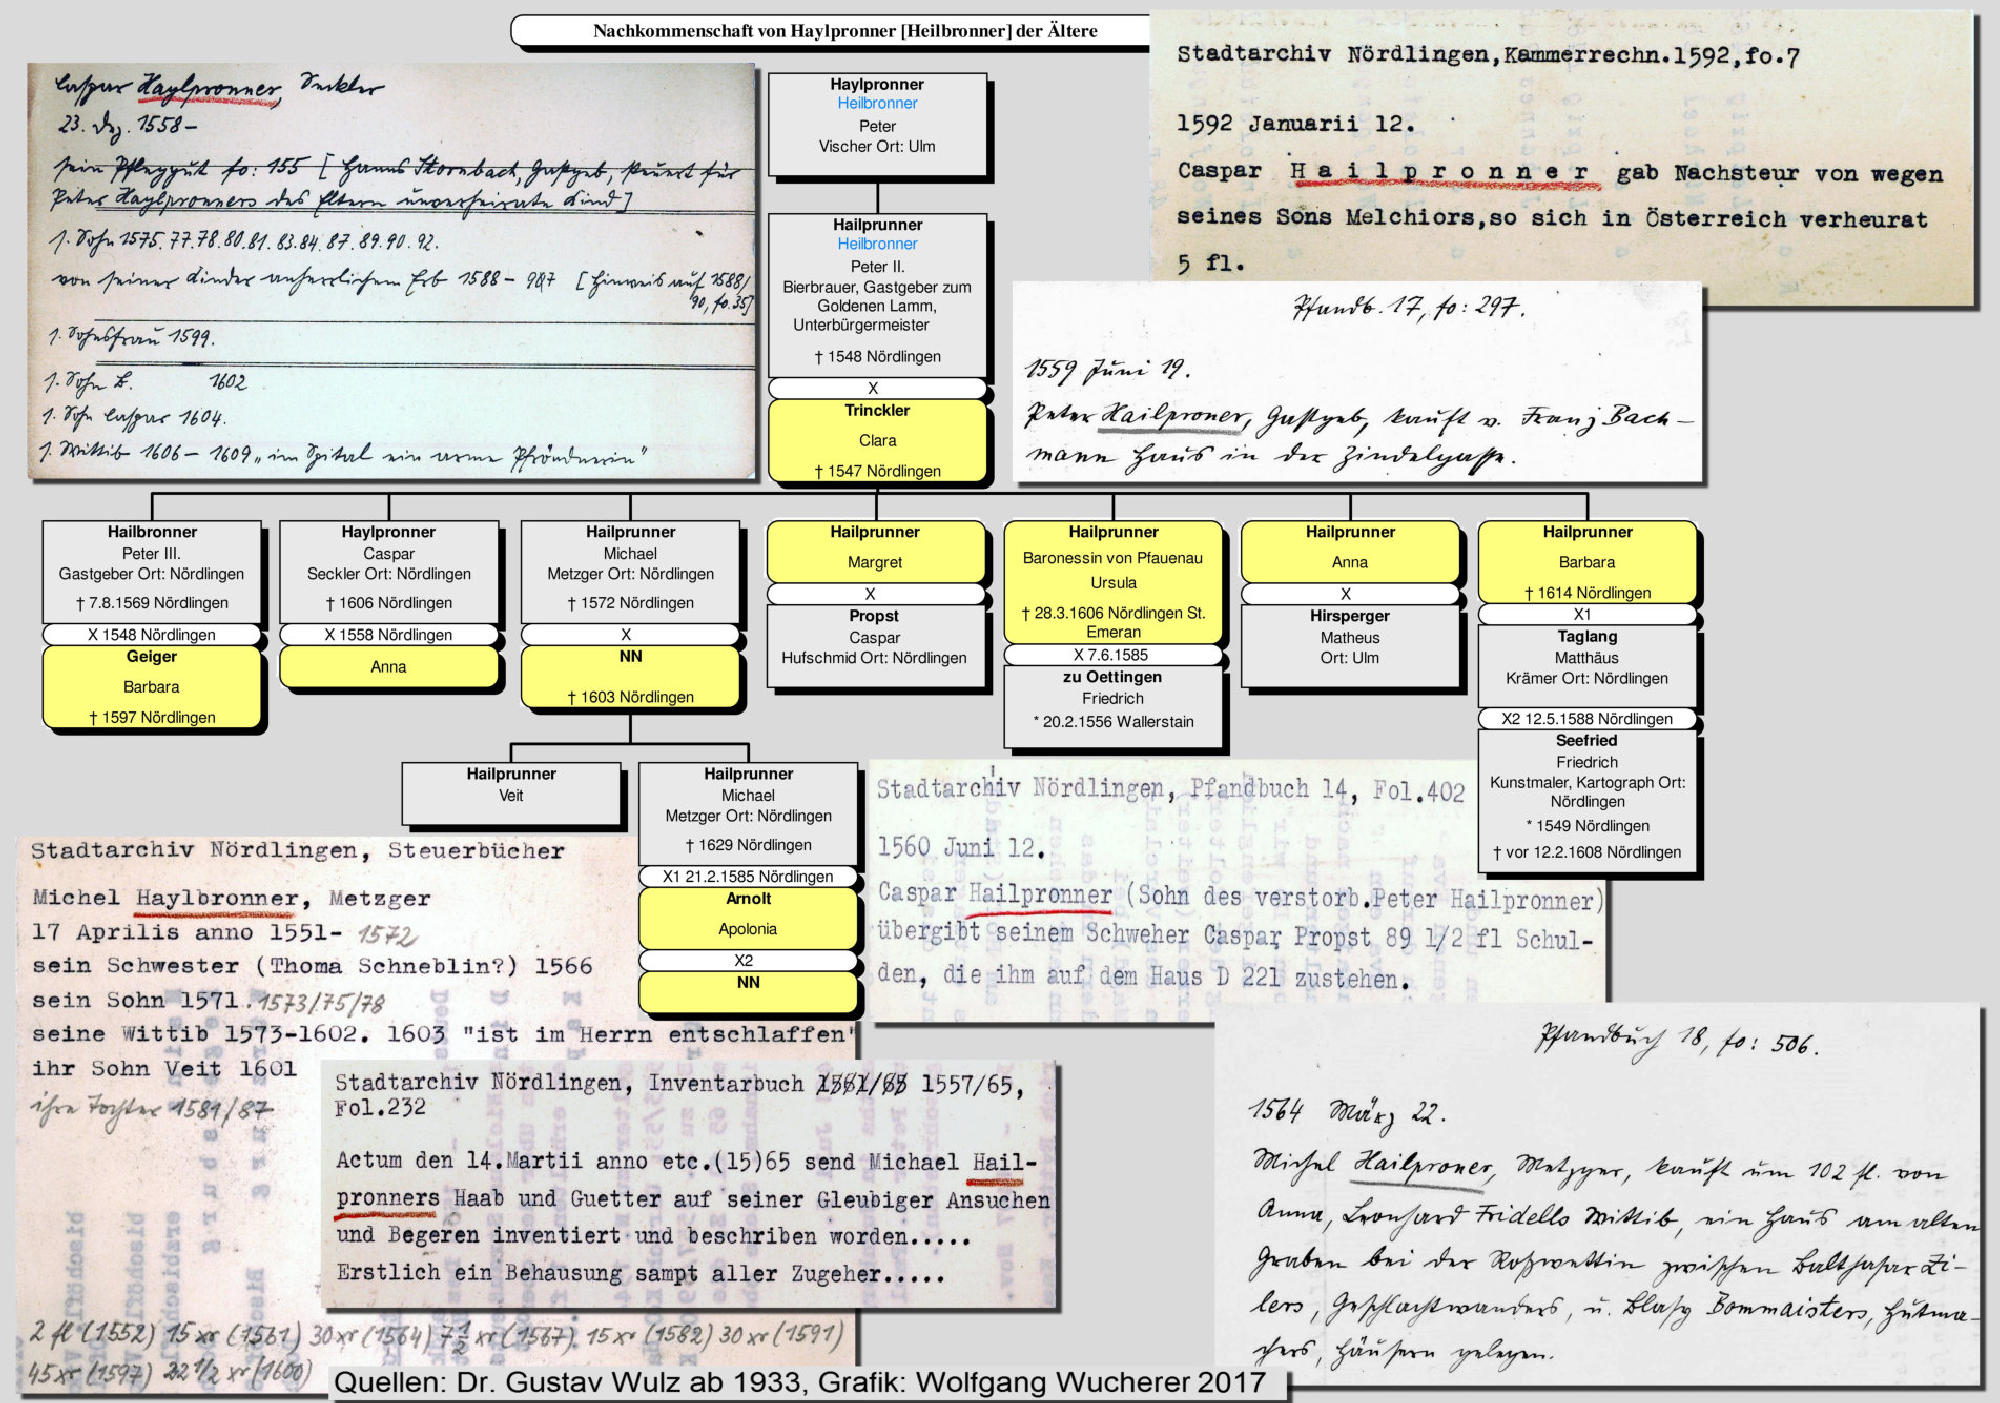 Nachkommenschaft von Haylpronner [Heilbronner] der Ältere
Caspar Haylpronner, Seckler
23. Dez. 1558 –
sein Pfleggut fo: 155 [ Hanns Stornbach, Gastgeb, steuert für
Peter Haylpronners des Eltern unverheirate Kind ]
1. Sohn 1575. 77. 78. 80. 81. 83. 84. 87. 89. 90. 92.
von seiner Kinder anherrlichem Erb 1588 – [ Hinweis auf 1588/
90, fo. 35]
1. Sohnsfrau 1599.
1. Sohn 1602
1. Sohn Caspar 1604.
1. Wittib 1606 – 1609 „im Spital ein arme Pfröndnerin"
Haylpronner
Heilbronner
Peter
Vischer Ort: Ulm
Hailprunner
Heilbronner
Peter II.
Bierbrauer, Gastgeber zum
Goldenen Lamm,
Unterbürgermeister
† 1548 Nördlingen
X
Trinckler
Clara
† 1547 Nördlingen
Stadtarchiv Nördlingen,Kammerrechn.1592,fo.7
1592 Januarii 12.
Caspar H a i l p r o n n e r gab Nachsteur von wegen
seines Sons Melchiors,so sich in Österreich verheurat
5 fl.
Pfandb. 17, fo: 297.
1559 Juni 19.
Peter Hailproner, Gastgeb, kauft v. Franz Bach-
mann Haus in der Zindelgasse.
Hailbronner
Peter III.
Gastgeber Ort: Nördlingen
† 7.8.1569 Nördlingen
X 1548 Nördlingen
Geiger
Barbara
† 1597 Nördlingen
Haylpronner
Caspar
Seckler Ort: Nördlingen
† 1606 Nördlingen
X 1558 Nördlingen
Anna
Hailprunner
Michael
Metzger Ort: Nördlingen
† 1572 Nördlingen
X
NN
† 1603 Nördlingen
Hailprunner
Margret
X
Propst
Caspar
Hufschmid Ort: Nördlingen
Hailprunner
Baronessin von Pfauenau
Ursula
† 28.3.1606 Nördlingen St.
Emeran
X 7.6.1585
zu Oettingen
Friedrich
* 20.2.1556 Wallerstain
Hailprunner
Anna
X
Hirsperger
Matheus
Ort: Ulm
Hailprunner
Barbara
† 1614 Nördlingen
X1
Taglang
Matthäus
Krämer Ort: Nördlingen
X2 12.5.1588 Nördlingen
Seefried
Friedrich
Kunstmaler, Kartograph Ort:
Nördlingen
* 1549 Nördlingen
† vor 12.2.1608 Nördlingen
Hailprunner
Veit
Hailprunner
Michael
Metzger Ort: Nördlingen
† 1629 Nördlingen
X1 21.2.1585 Nördlingen
Arnolt
Apolonia
X2
NN
Stadtarchiv Nördlingen, Pfandbuch 14, Fol.402
1560 Juni 12.
Caspar Hailpronner (Sohn des verstorb.Peter Hailpronner)
übergibt seinem Schweher Caspar Propst 89 1/2 fl Schul-
den, die ihm auf dem Haus D 221 zustehen.
Stadtarchiv Nördlingen, Steuerbücher
Michel Haylbronner, Metzger
17 Aprilis anno 1551- 1572
sein Schwester (Thoma Schneblin?) 1566
sein Sohn 1571. 1573/75/78
seine Wittib 1573-1602. 1603 "ist im Herrn entschlaffen"
ihr Sohn Veit 1601
ihre Tochter 1581/87
2 fl (1552) 15 xr (1561) 30 xr (1564) 7 1/2 xr (1567). 15 xr (1582) 30 xr (1591)
45 xr (1597) 22 1/2 xr (1600)
Stadtarchiv Nördlingen, Inventarbuch 1557/65,
Fol.232
Actum den 14.Martii anno etc.(15)65 send Michael Hail-
pronners Haab und Guetter auf seiner Gleubiger Ansuchen
und Begeren inventiert und beschriben worden.....
Erstlich ein Behausung sampt aller Zugeher.....
Pfandbuch 18, fo: 506.
1564 März 22.
Michel Hailproner, Metzger, kauft um 102 fl. von
Anna, Leonhard Fridells Wittib, ein Haus am alten
Graben bei der Roßwettin zwischen Balthasar Zi-
lers, Geschlachtwanders, u. Blasy Bommaisters, Hutma-
chers, Häusern gelegen.
Quellen: Dr. Gustav Wulz ab 1933, Grafik: Wolfgang Wucherer 2017